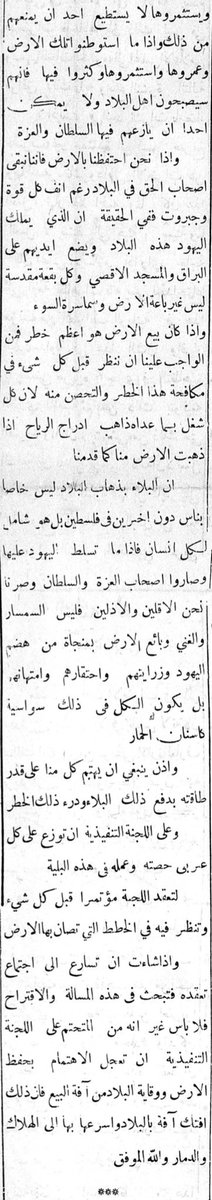 ويستثمروها لا يستطيع احد ان يمنعهم
من ذلك واذا ما استوطنوا تلك الارض
وعمروها واستثمروها وكثروا فيها فانهم
سيصبحون اهل البلاد ولا يمكن
احدا ان ينازعهم فيها السلطان والعزة
واذا نحن احتفظنا بالارض فاننا نبقى
اصحاب الحق في البلاد رغم انف كل قوة
وجبروت ففي الحقيقة ان الذي يملك
اليهود هذه البلاد ويضع ايديهم على
البراق والمسجد الاقصي وكل بقعة مقدسة
ليس غير باعة الارض وسماسرة السوء
واذا كان بيع الارض هو اعظم خطر فمن
الواجب علينا ان ننظر قبل كل شيء في
مكافحة هذا الخطر والتحصن منه لان كل
شغل بما عداه ذاهب ادراج الرياح اذا
ذهبت الارض منا كما قدمنا
ان البلاء بذهاب البلاد ليس خاصا
بناس دون اخرين في فلسطين بل هو شامل
لكل انسان فاذا ما تسلط اليهود عليها
وصاروا اصحاب العزة والسلطان وصرنا
نحن الاقلين والاذلين فليس السمسار
والغني وبائع الارض بمنجاة من هضم
اليهود وزرايتهم واحتقارهم وامتهانهم
بل يكون الكل في ذلك سواسية
كاسنان الحمار
واذن ينبغي ان يهتم كل منا على قدر
طاقته بدفع ذلك البلاء ودرء ذلك الخطر
وعلى اللجنة التنفيذية ان توزع على كل
عربي حصته وعمله في هذه البلية
لتعقد اللجنة مؤتمرا قبل كل شيء
وتنظر فيه في الخطط التي تصان بها الارض
واذا شاءت ان تسارع الى اجتماع
تعقده فتبحث في هذه المسالة والاقتراح
فلا باس غير انه من المتحتم على اللجنة
التنفيذية ان تعجل الاهتمام بحفظ
الارض ووقاية البلاد من آفة البيع فان ذلك
افتك آفة بالبلاد واسرعها بها الى الهلاك
والدمار والله الموفق
***